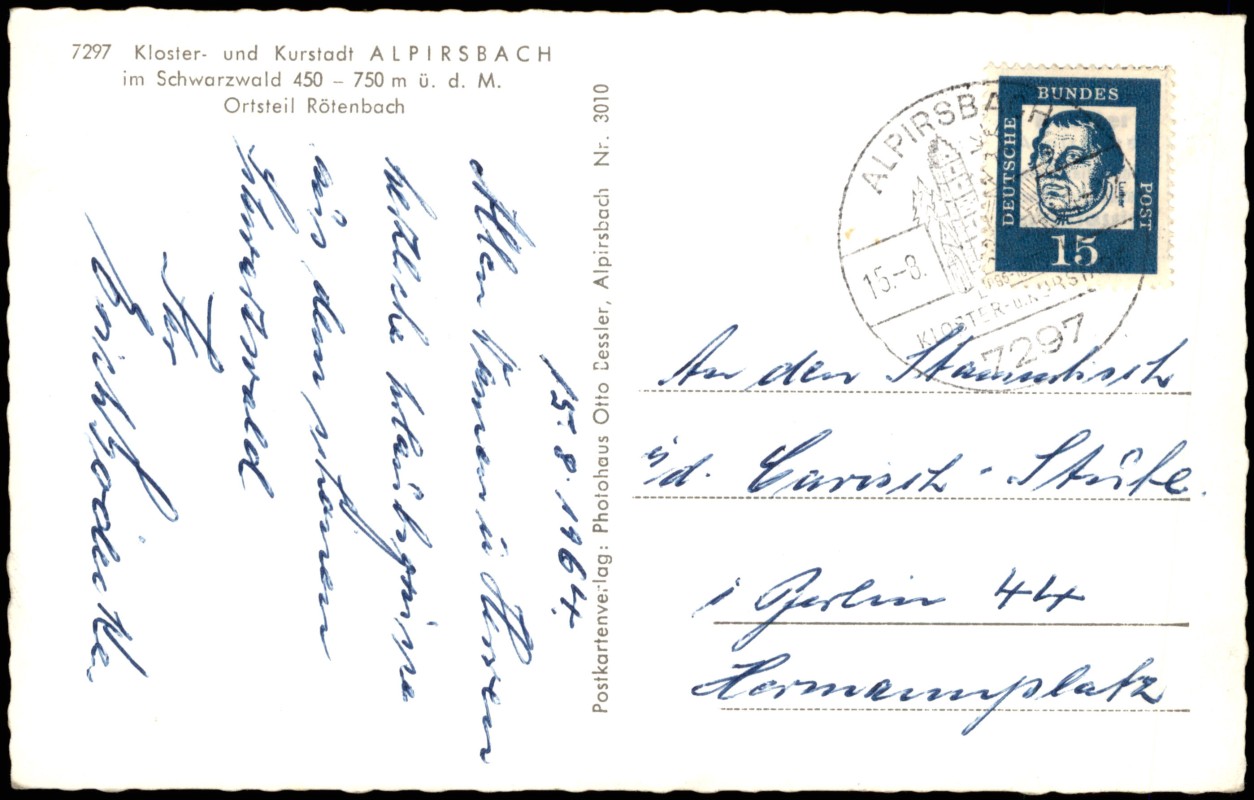 7297 Kloster- und Kurstadt ALPIRSBACH
im Schwarzwald 450 – 750 m ü. d. M.
Ortsteil Rötenbach
15.8.1964.
Allen Damen u Herren
herzliche Urlaubsgrüsse
aus dem schönen
Schwarzwald
Ihr
Erich
Postkartenverlag: Photohaus Otto Dessler, Alpirsbach Nr. 3010
ALPIRSBACH
15.-8.
KLOSTER-u.KURSTA
7297
DEUTSCHE
BUNDES
POST
Luther
15
An den Stammtisch
i/d. Carisch-Stube.
i Berlin 44
Hermannplatz